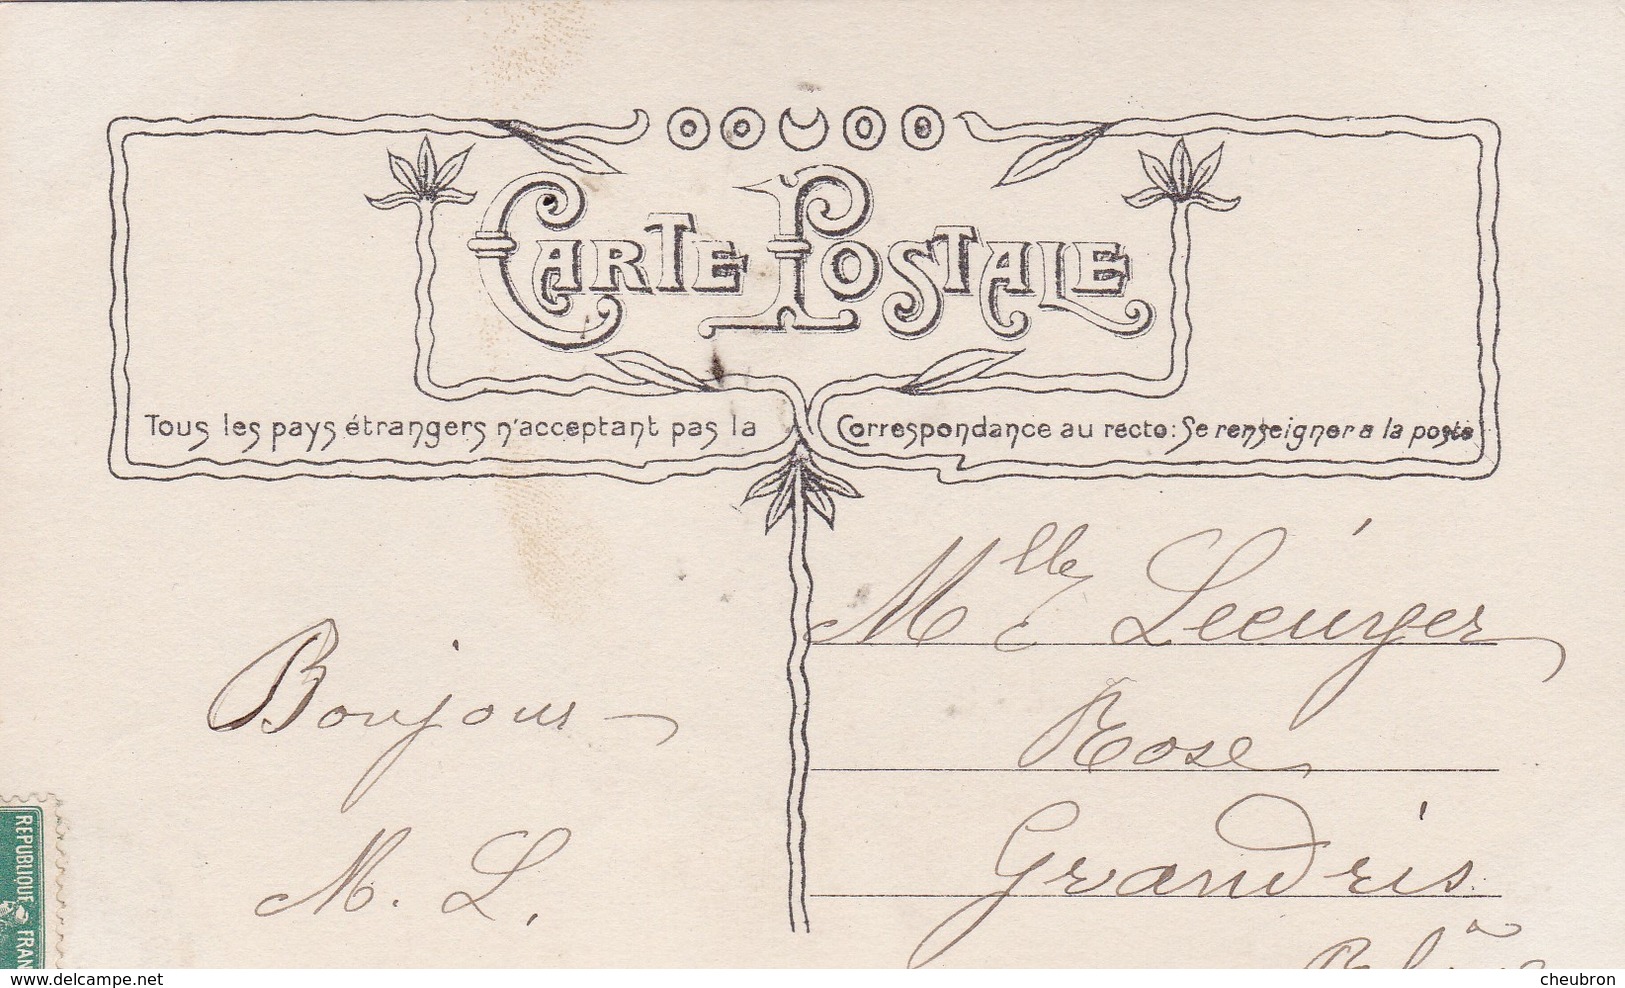 CARTE POSTALE
Tous les pays étrangers n'acceptant pas la Correspondance au recto: Se renseigner a la poste
Bonjour
M. L.
Mlle
Rose
Grandris
REPUBLIQUE FRAN
delcampe.net
cheubron